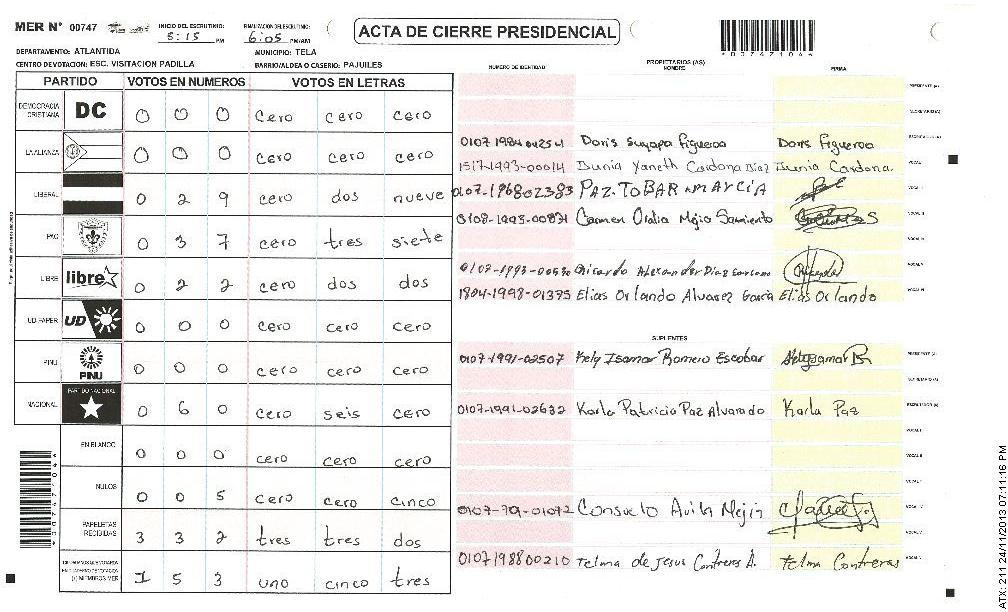 MER N° 00747 INICIO DEL ESCRUTINIO: 5:15 PM FINALIZACION ESCRUTINIO: 6:05 PM/AM
ACTA DE CIERRE PRESIDENCIAL
DEPARTAMENTO: ATLANTIDA MUNICIPIO: TELA
CENTRO DE VOTACION: ESC. VISITACION PADILLA BARRIO/ALDEA O CASERIO: PAJUILES
PARTIDO VOTOS EN NUMEROS VOTOS EN LETRAS
DEMOCRACIA CRISTIANA DC 0 0 0 cero cero cero
LA ALIANZA 0 0 0 cero cero cero
LIBERAL 0 2 9 cero dos nueve
PAC 0 3 7 cero tres siete
LIBRE libre 0 2 2 cero dos dos
UD-FAPER UD 0 0 0 cero cero cero
PINU PINU 0 0 0 cero cero cero
NACIONAL PARTIDO NACIONAL 0 6 0 cero seis cero
EN BLANCO 0 0 0 cero cero cero
NULOS 0 0 5 cero cero cinco
PAPELETAS RECIBIDAS 3 3 2 tres tres dos
(+) MIEMBROS MER 1 5 3 uno cinco tres
NUMERO DE IDENTIDAD PROPIETARIOS (AS) NOMBRE FIRMA
0107-1984-04254 Doris Suyapa Figueroa Doris Figueroa
1517-1993-00014 Dunia Yaneth Cardona Diaz Dunia Cardona
0107-196802383 PAZ-TOBAR-MARCIA
0108-1993-00831 Carmen Oralia Mejia Sarmiento
0107-1993-00530 Ricardo Alexander Diaz
1804-1998-01375 Elias Orlando Alvarez Garcia Elias Orlando
SUPLENTES
0107-1991-02507 Kely Isamar Romero Escobar
0107-1991-02632 Karla Patricia Paz Alvarado Karla Paz
0107-79-01072 Consuelo Avila Mejia
0107198800210 Telma de Jesus Contreras A. Telma Contreras
ATX: 211 24/11/2013 07:11:16 PM